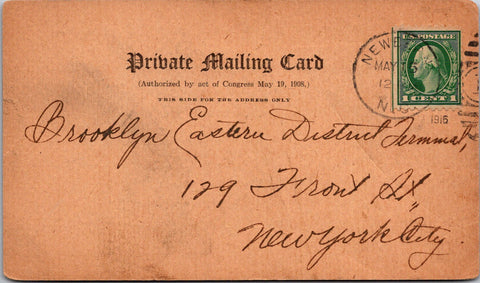 Private Mailing Card
(Authorized by act of Congress May 19, 1898.)
THIS SIDE FOR THE ADDRESS ONLY
U.S. POSTAGE
1 CENT 1
MAY
1916
Brooklyn Eastern District Terminal,
129 Front St.,
New York City.